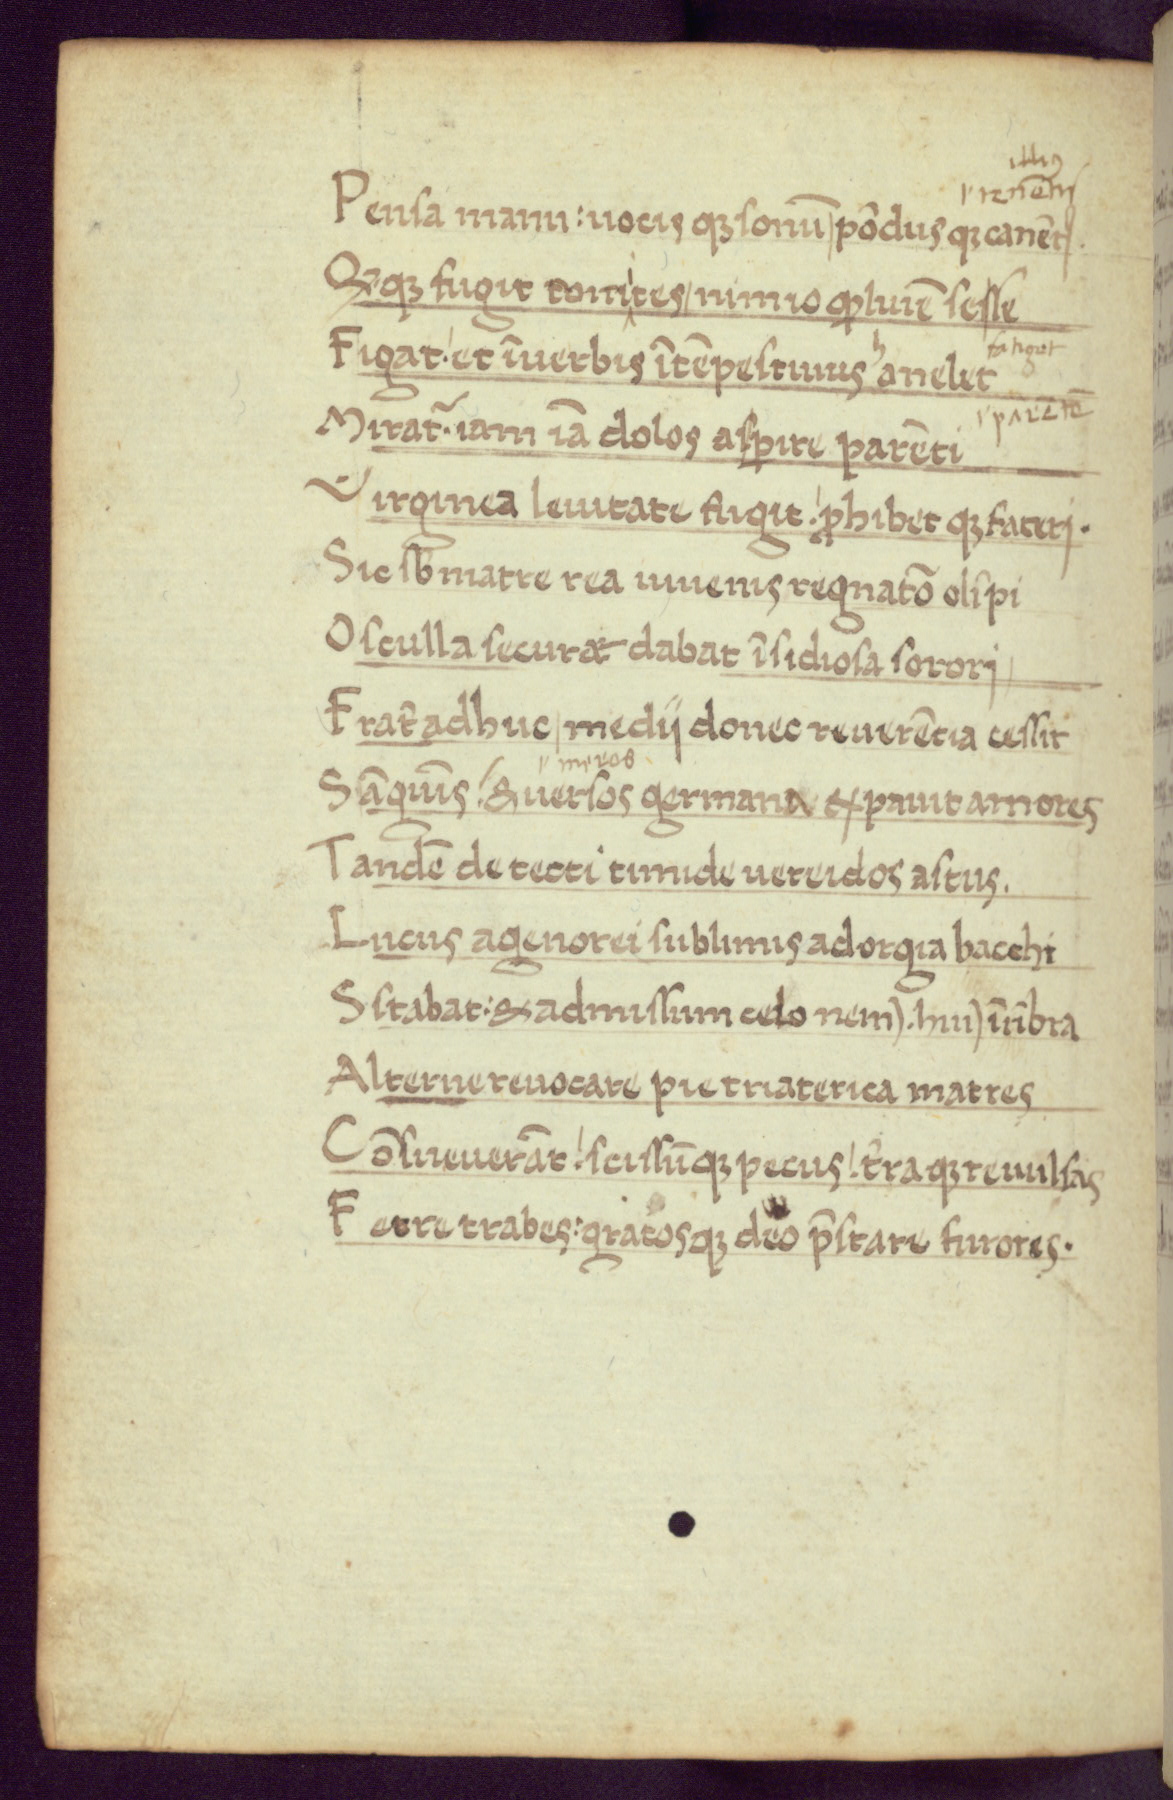 illiꝰ
ł renētis
Pensa manu: uocis qꝫ sonū / põdus qꝫ canētis.
Qᷓqꝫ fugit comites / nimio qꝫ luuiē sesse
Figat! et ĩuerbis ĩtēpestiuus hanelet
fatiget
ł parētē
Mirat᷑. iam iā dolos aspire parēti
Virginea leuitate fugit! ꝓhibet qꝫ fateri.
Sic sb matre rea iuuenis regnatõ olīpi
Osculla securæ dabat ĩsidiosa sorori /
Frat̃ adhuc / medij donec reuerētia cessit
ł meros
Sāquīs! & uersos germana expauit amores
Tandē detecti timide uereidos astus.
Lucus agenorei sublimis ad orgia bacchi
Sstabat: & admissum celo nemꝰ.
Alterne reuocare pie triaterica matres
Cõsueuerāt! scissūqꝫ pecus! t̃raqꝫ reuulsas
Ferre trabes: gratosqꝫ deo p̄stare furores.